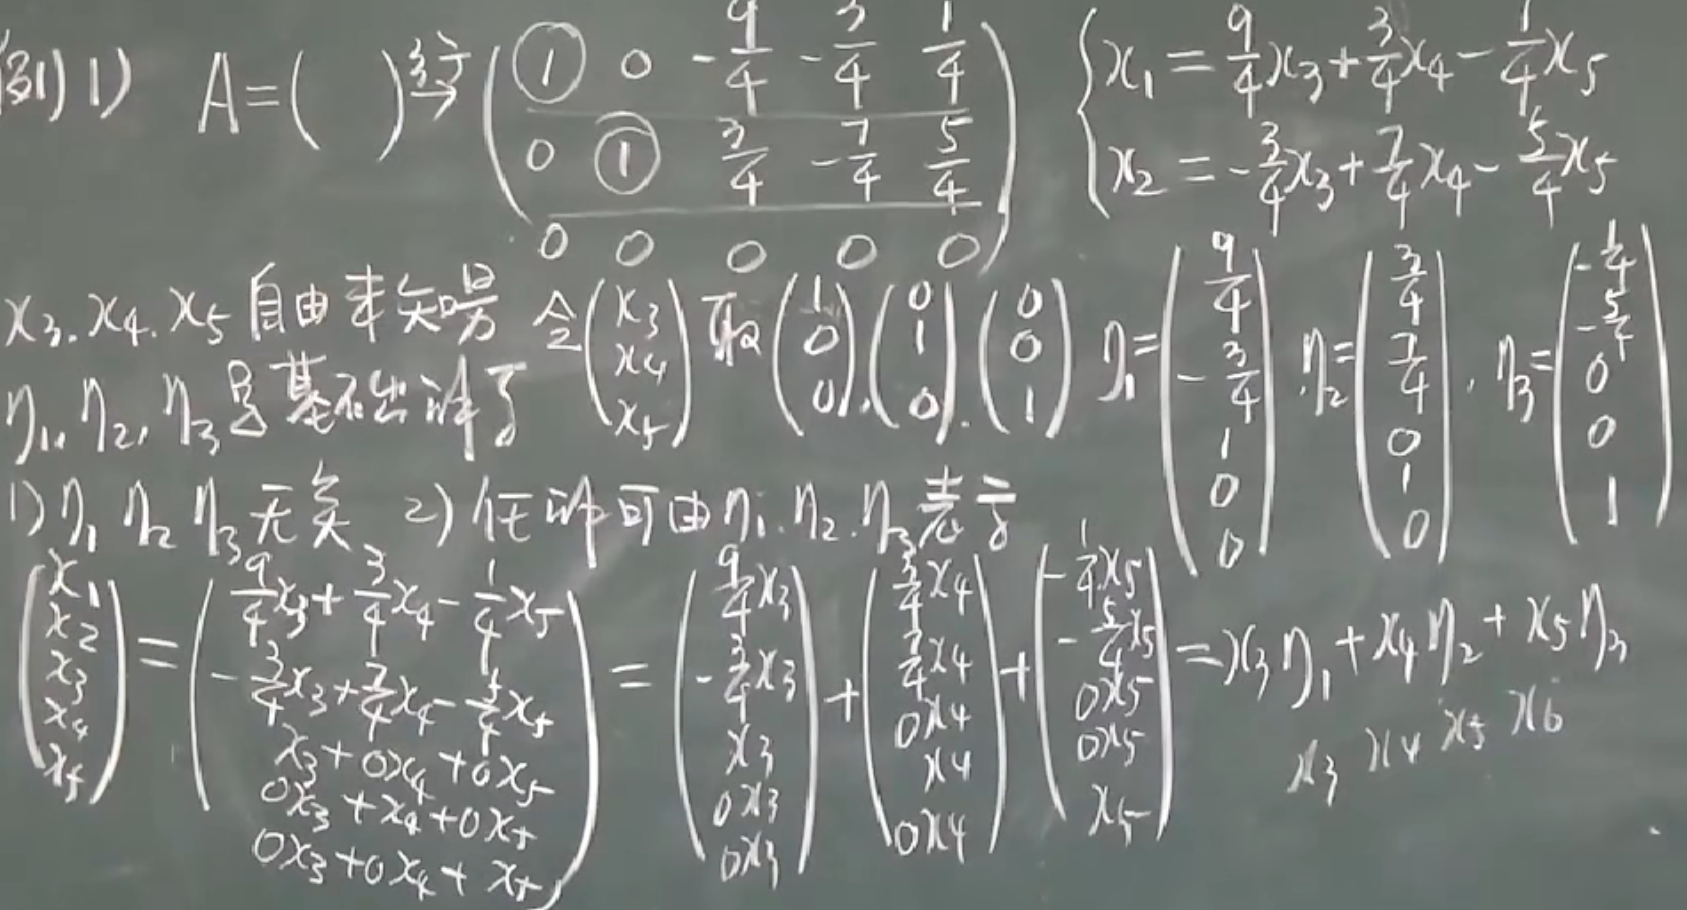 例1) 1) A=( ) 行→ (1 0 -9/4 -3/4 1/4; 0 1 3/4 -7/4 5/4; 0 0 0 0 0) { x₁ = 9/4x₃ + 3/4x₄ - 1/4x₅; x₂ = -3/4x₃ + 7/4x₄ - 5/4x₅
x₃.x₄.x₅自由未知量 令(x₃; x₄; x₅)取(1; 0; 0).(0; 1; 0).(0; 0; 1) η₁=(9/4; -3/4; 1; 0; 0) .η₂=(3/4; 7/4; 0; 1; 0) .η₃=(-1/4; -5/4; 0; 0; 1)
η₁.η₂.η₃是基础解系
1) η₁ η₂ η₃无关 2) 任一解可由η₁.η₂.η₃表示
(x₁; x₂; x₃; x₄; x₅) = (9/4x₃+3/4x₄-1/4x₅; -3/4x₃+7/4x₄-5/4x₅; x₃+0x₄+0x₅; 0x₃+x₄+0x₅; 0x₃+0x₄+x₅) = (9/4x₃; -3/4x₃; x₃; 0x₃; 0x₃) + (3/4x₄; 7/4x₄; 0x₄; x₄; 0x₄) + (-1/4x₅; -5/4x₅; 0x₅; 0x₅; x₅) = x₃η₁+x₄η₂+x₅η₃
x₃ x₄ x₅ x₆